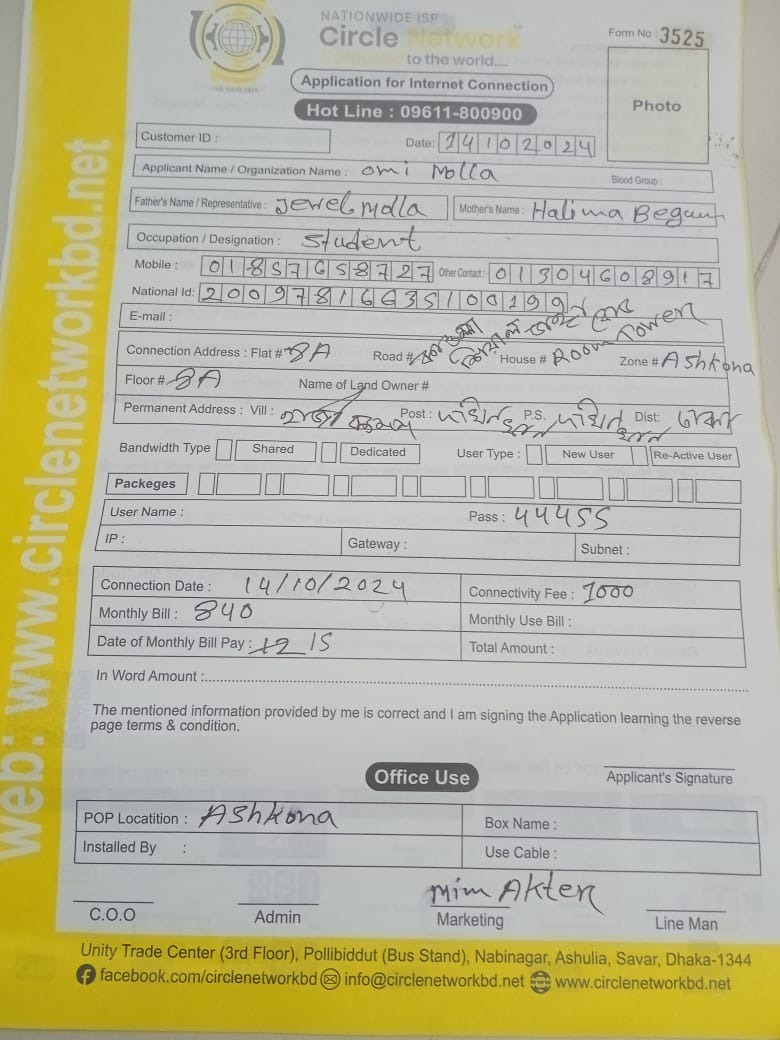 NATIONWIDE ISP
Circle Network
to the world....
Form No : 3525
Application for Internet Connection
Hot Line : 09611-800900
Photo
Customer ID :
Date: 14102024
Applicant Name / Organization Name : omi Molla
Blood Group :
Father's Name / Representative : Jewel Molla Mother's Name : Halima Begum
Occupation / Designation : Student
Mobile : 01857658727 Other Contact : 01304608917
National Id: 20097816635100199
E-mail :
Connection Address : Flat # 8A Road # House # Room Tower Zone # Ashkona
Floor # 8A Name of Land Owner #
Permanent Address : Vill : Post : P.S. Dist: ঢাকা
Bandwidth Type Shared Dedicated User Type : New User Re-Active User
Packeges
User Name : Pass : 44455
IP : Gateway : Subnet :
Connection Date : 14/10/2024 Connectivity Fee : 1000
Monthly Bill : 840 Monthly Use Bill :
Date of Monthly Bill Pay : 15 Total Amount :
In Word Amount :
The mentioned information provided by me is correct and I am signing the Application learning the reverse
page terms & condition.
Office Use
Applicant's Signature
POP Locatition : Ashkona Box Name :
Installed By : Use Cable :
Mim Akter
C.O.O Admin Marketing Line Man
Unity Trade Center (3rd Floor), Pollibiddut (Bus Stand), Nabinagar, Ashulia, Savar, Dhaka-1344
facebook.com/circlenetworkbd info@circlenetworkbd.net www.circlenetworkbd.net
web: www.circlenetworkbd.net